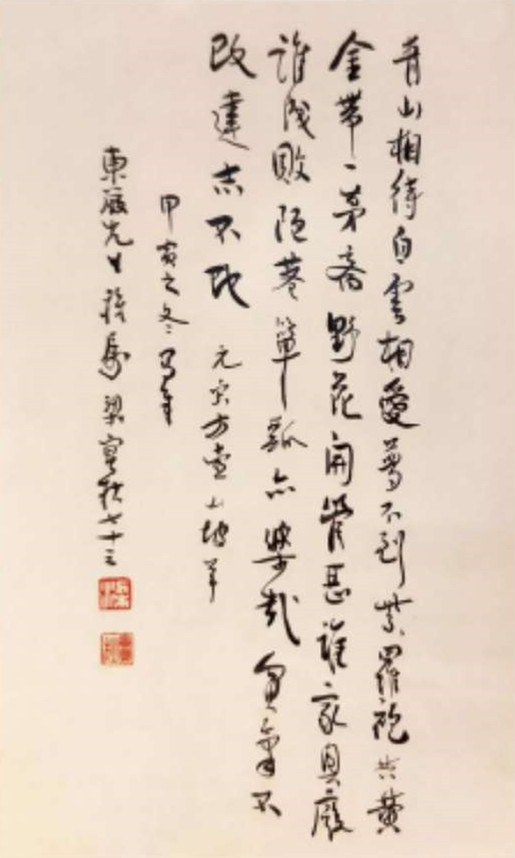 青山相待白雲相愛夢不到紫羅袍共黄
金帶一茅齋野花開管甚誰家興廢
誰成敗陋巷簞瓢亦樂哉貧氣不
改達志不改 元宋方壺山坡羊
甲寅之冬寫奉
東先生 梁實秋七十三